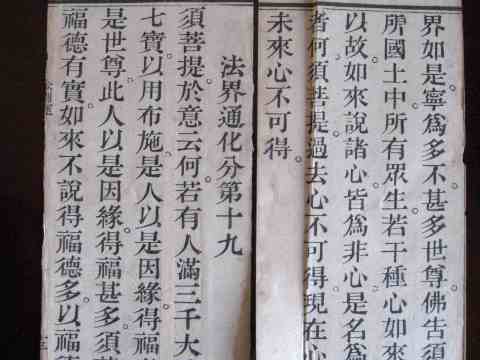 界如是。寧爲多不。甚多世尊。佛告須
所國土中所有眾生。若干種心。如來
以故。如來說諸心。皆爲非心。是名爲
者何。須菩提。過去心不可得。現在心
未來心不可得。
法界通化分第十九
須菩提。於意云何。若有人滿三千大
七寶。以用布施。是人以是因緣。得福
是世尊。此人以是因緣。得福甚多。須
福德有實。如來不說得福德多。以福德